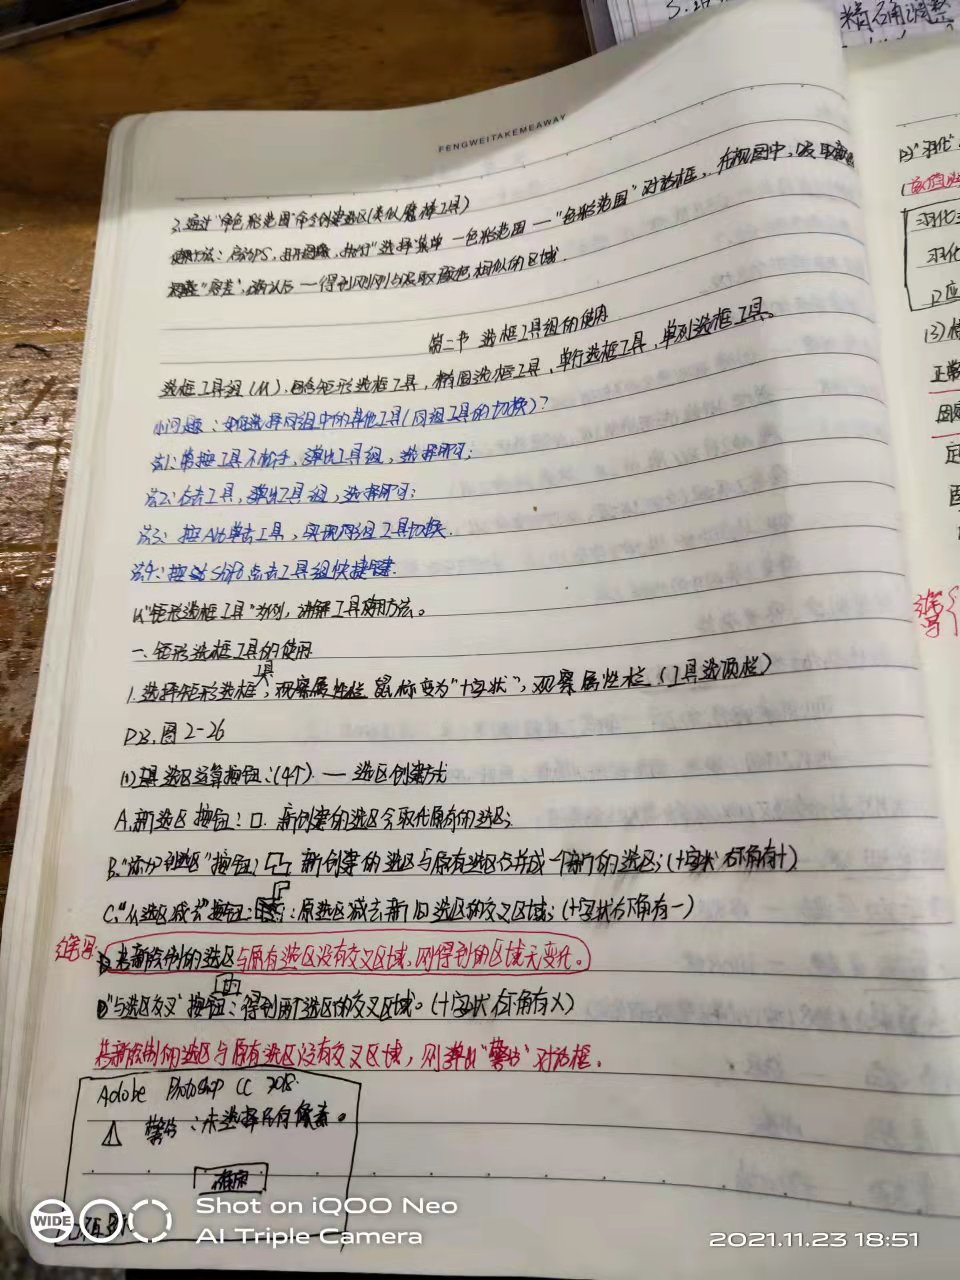 精确调整
FENGWEITAKEMEAWAY
3.通过"色彩范围"命令创建选区(类似魔棒工具)
使用方法：启动PS，打开图像，执行"选择"菜单—色彩范围—"色彩范围"对话框，在视图中，吸取颜色
"容差"，确认后—得到刚刚与吸取颜色相似的区域.
第二节 选框工具组的使用
选框工具组(M).包含矩形选框工具，椭圆选框工具、单行选框工具、单列选框工具。
小问题：如何选择同组中的其他工具(同组工具的切换)?
法1:常按工具不松手，弹出工具组，选择即可;
法2:右击工具，弹出工具组，选择即可;
法3：按Alt单击工具，实现同组工具切换.
法4:按 Shift 点击工具组快捷键.
以"矩形选框工具"为例，讲解工具使用方法。
一、矩形选框工具的使用
1.选择矩形选框工具，鼠标变为"十字状"，观察属性栏(工具选项栏)
P23.图2-26
(1)选区运算按钮:(4个).—选区创建方式
A.新选区按钮：口.新创建的选区会取代原有的选区;
B."添加到选区"按钮: 新创建的选区与原有选区合并成一个新的选区;(十字状右下角有+)
C."从选区减去"按钮: :原选区减去新旧选区的交叉区域;(十字状右下角有一)
编写:若新绘制的选区与原有选区没有交叉区域,则得到的区域无变化。
D"与选区交叉"按钮:得到两个选区的交叉区域。(十字状右下角有×)
若新绘制的选区与原有选区没有交叉区域，则弹出"警告"对话框.
Adobe Photoshop CC 2018.
警告：未选择任何像素。
确定
(3)
正常
WIDE
Shot on iQOO Neo
AI Triple Camera
2021.11.23 18:51